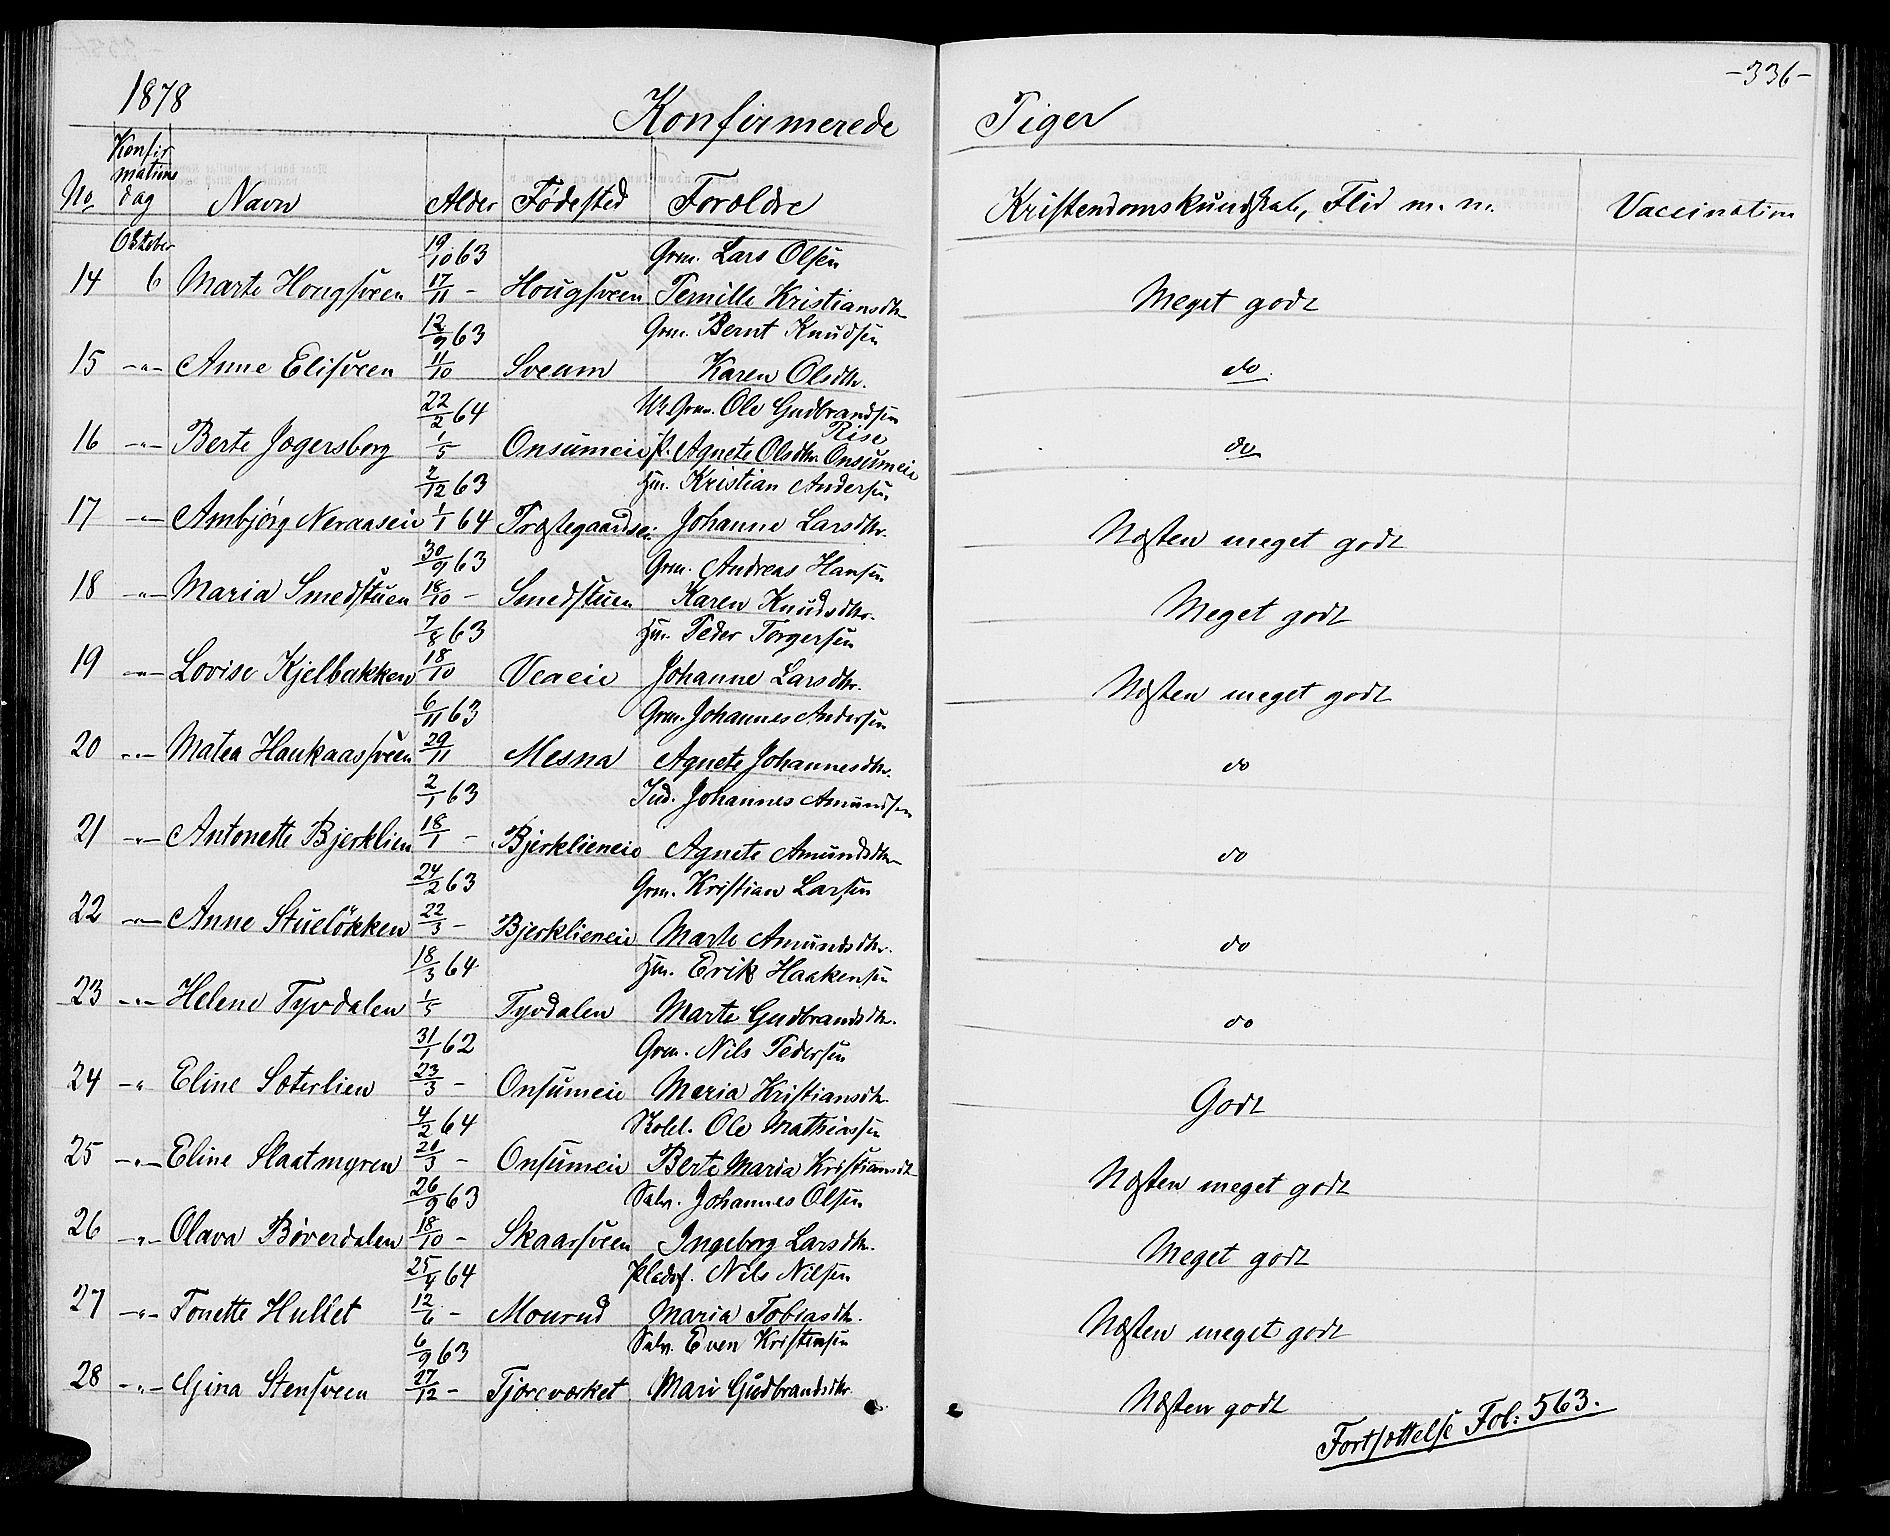 1878 Konfirmerede Piger -336-
No Konfirmations dag Navn Alder Fødested Forældre Kristendomskundskab, Flid m. m. Vaccination
Oktober 19/10 63 Grm. Lars Olsen
14 6 Marte Hougsveen 17/11 - Hougsveen Pernille Kristiansdtr Meget godt
12/9 63 Grm. Bernt Knudsen
15 -"- Anne Elisveen 11/10 Sveum Karen Olsdtr. do.
22/2 64 Uk. Grm. Ole Gudbrandsen Rise
16 -"- Berte Jægersborg 1/5 Onsumeie P. Agnete Olsdtr. Onsumeie do
2/12 63 Hm. Kristian Andersen
17 -"- Ambjørg Neraaseie 1/1 64 Præstegaardsei. Johanne Larsdtr. Næsten meget godt
30/9 63 Grm. Andreas Hansen
18 -"- Maria Smedstuen 18/10 - Smedstuen Karen Knudsdtr. Meget godt
7/8 63 Hm. Peder Torgersen
19 -"- Lovise Kjelbakken 18/10 Veaeie Johanne Larsdtr. Næsten meget godt
6/11 63 Grm. Johannes Andersen
20 -"- Matea Haukaassveen 29/11 Mesna Agnete Johannesdtr. do
2/1 63 Ind. Johannes Amundsen
21 -"- Antonette Bjerklien 18/1 - Bjerklieneie Agnete Amundsdtr do
24/2 63 Grm. Kristian Larsen
22 -"- Anne Stueløkken 22/3 - Bjerklieneie Marte Amundsdtr. do
18/3 64 Hm. Erik Haakensen
23 -"- Helene Tyvdalen 1/5 Tyvdalen Marte Gudbrandsdtr. do
31/1 62 Grm. Nils Pedersen
24 -" Eline Sæterlien 23/3 - Onsumeie Maria Kristiansdtr Godt
4/2 64 Ole Mathiassen
25 -"- Eline Slaatmyren 20/3 - Onsumeie Berte Maria Kristiansdtr Næsten meget godt
26/9 63 Selv. Johannes Olsen
26 -"- Olava Bøverdalen 18/10 - Skaarsveen Ingeborg Larsdtr. Meget godt
25/4 64 Pladsf. Nils Nilsen
27 -"- Tonette Hullet 12/6 - Mourud Maria Tobiasdtr. Næsten meget godt
6/9 63 Selv. Even Kristensen
28 -"- Gina Stensveen 27/12 - Tjæreværket Mari Gudbrandsdtr Næsten godt
Fortsættelse Fol: 563.